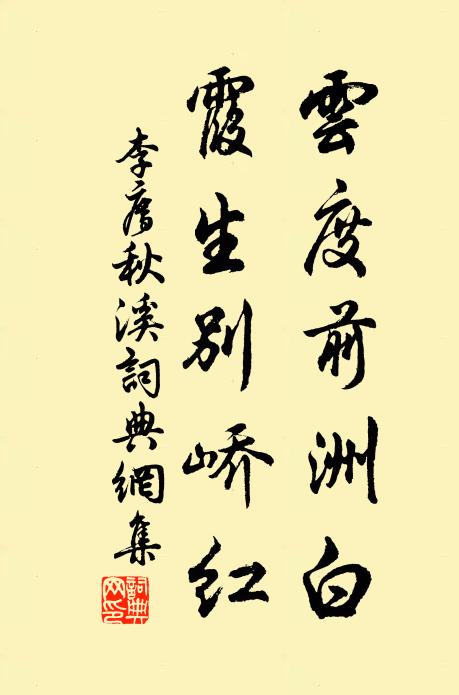 雲度前洲白
霞生別嶠紅
李膺秋溪詞典網集
詞典
網印